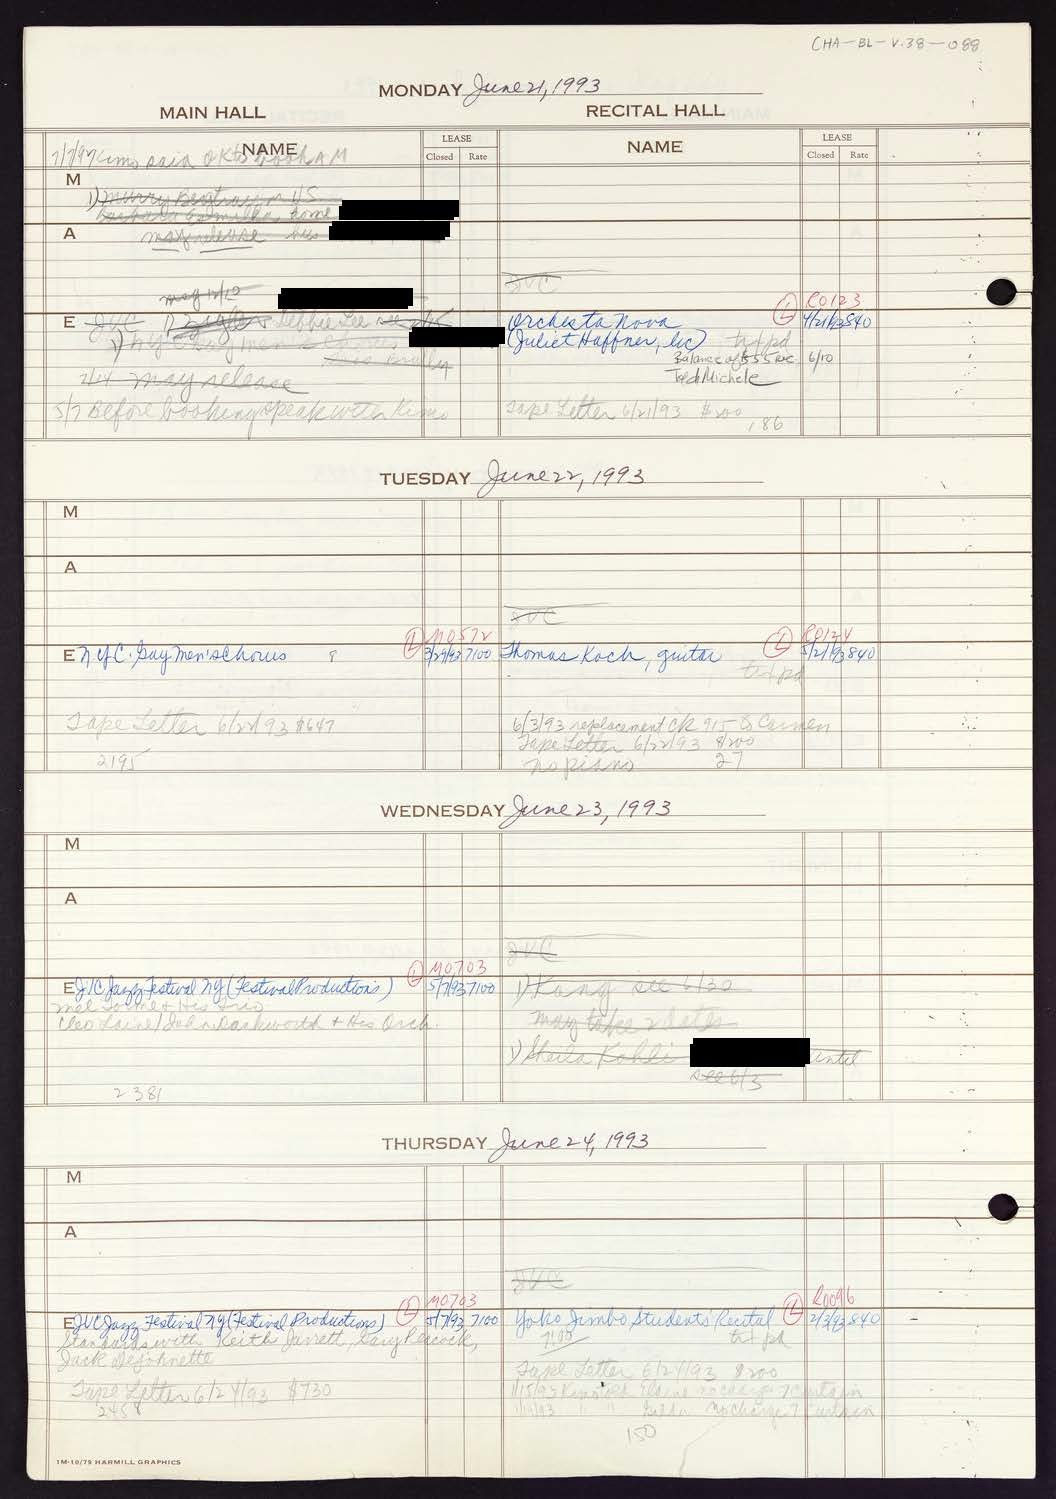 CHA-BL-V.38-088
MONDAY June 21, 1993
MAIN HALL
RECITAL HALL
NAME
LEASE
Closed Rate
NAME
LEASE
Closed Rate
7/7/92 Kimo said OK to book AM
M
1) Murry
Barbara home
A
may release bus
JVC
may 12/10
R0123
E JVC Debbie Lee see 2/15
Orchestra Nova
L 4/21/93 840
1) NY Gay men's Chorus
(Juliet Haffner, lic)
txt pd
Balance of 555 rec 6/10
Told Michele
2/24 may release
5/7 Before booking speak with Kimo
Tape Letter 6/21/93 $200
186
TUESDAY June 22, 1993
M
A
JVC
M0572
R0124
E N.Y.C. Gay Men's Chorus 8
L 3/29/93 7100
Thomas Koch, guitar
L 5/21/93 840
txt pd
Tape Letter 6/22/93 $647
6/3/93 replacement ck 915 to Carmen
Tape Letter 6/22/93 $200
2195
no piano 27
WEDNESDAY June 23, 1993
M
A
JVC
M0703
E JVC Jazz Festival NY (Festival Productions)
L 5/7/93 7100
1) Kang see 6/30
Mel Torme + His Trio
Cleo Laine/John Dankworth + His Orch.
may take 2 dates
1) Sheila Kohli until
see 6/3
2381
THURSDAY June 24, 1993
M
A
JVC
M0703
R0096
E JVC Jazz Festival NY (Festival Productions)
L 5/7/93 7100
Yoko Jimbo Students' Recital
L 2/3/93 840
Standards with Keith Jarrett, Gary Peacock,
txt pd
Jack DeJohnette
Tape Letter 6/24/93 $730
Tape Letter 6/24/93 $200
1/15/93 Kimo told Elaine no charge 7 curtain
1/19/93 " " Gilda no charge 7 curtain
150
1M-10/79 HARMILL GRAPHICS